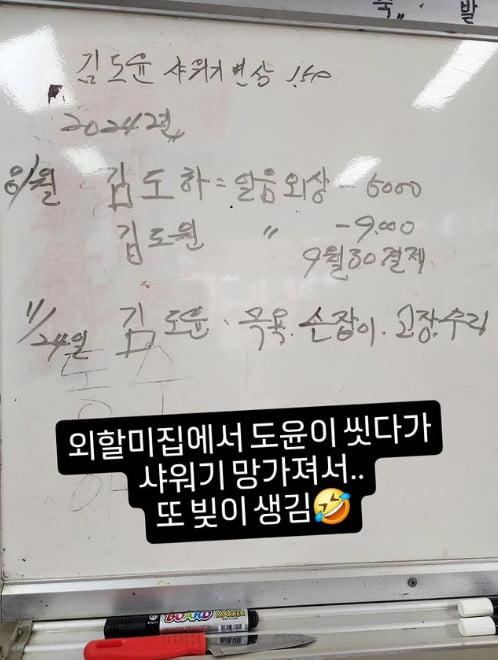 축 발
김도윤 샤워기 변상
2024년
김도하 = 얼음외상 - 6000
김도원 〃 -9.000
9월30결제
11/24일 김도윤. 목욕. 손잡이. 고장. 수리
외할미집에서 도윤이 씻다가
샤워기 망가져서..
또 빚이 생김🤣
BOARD MARKER